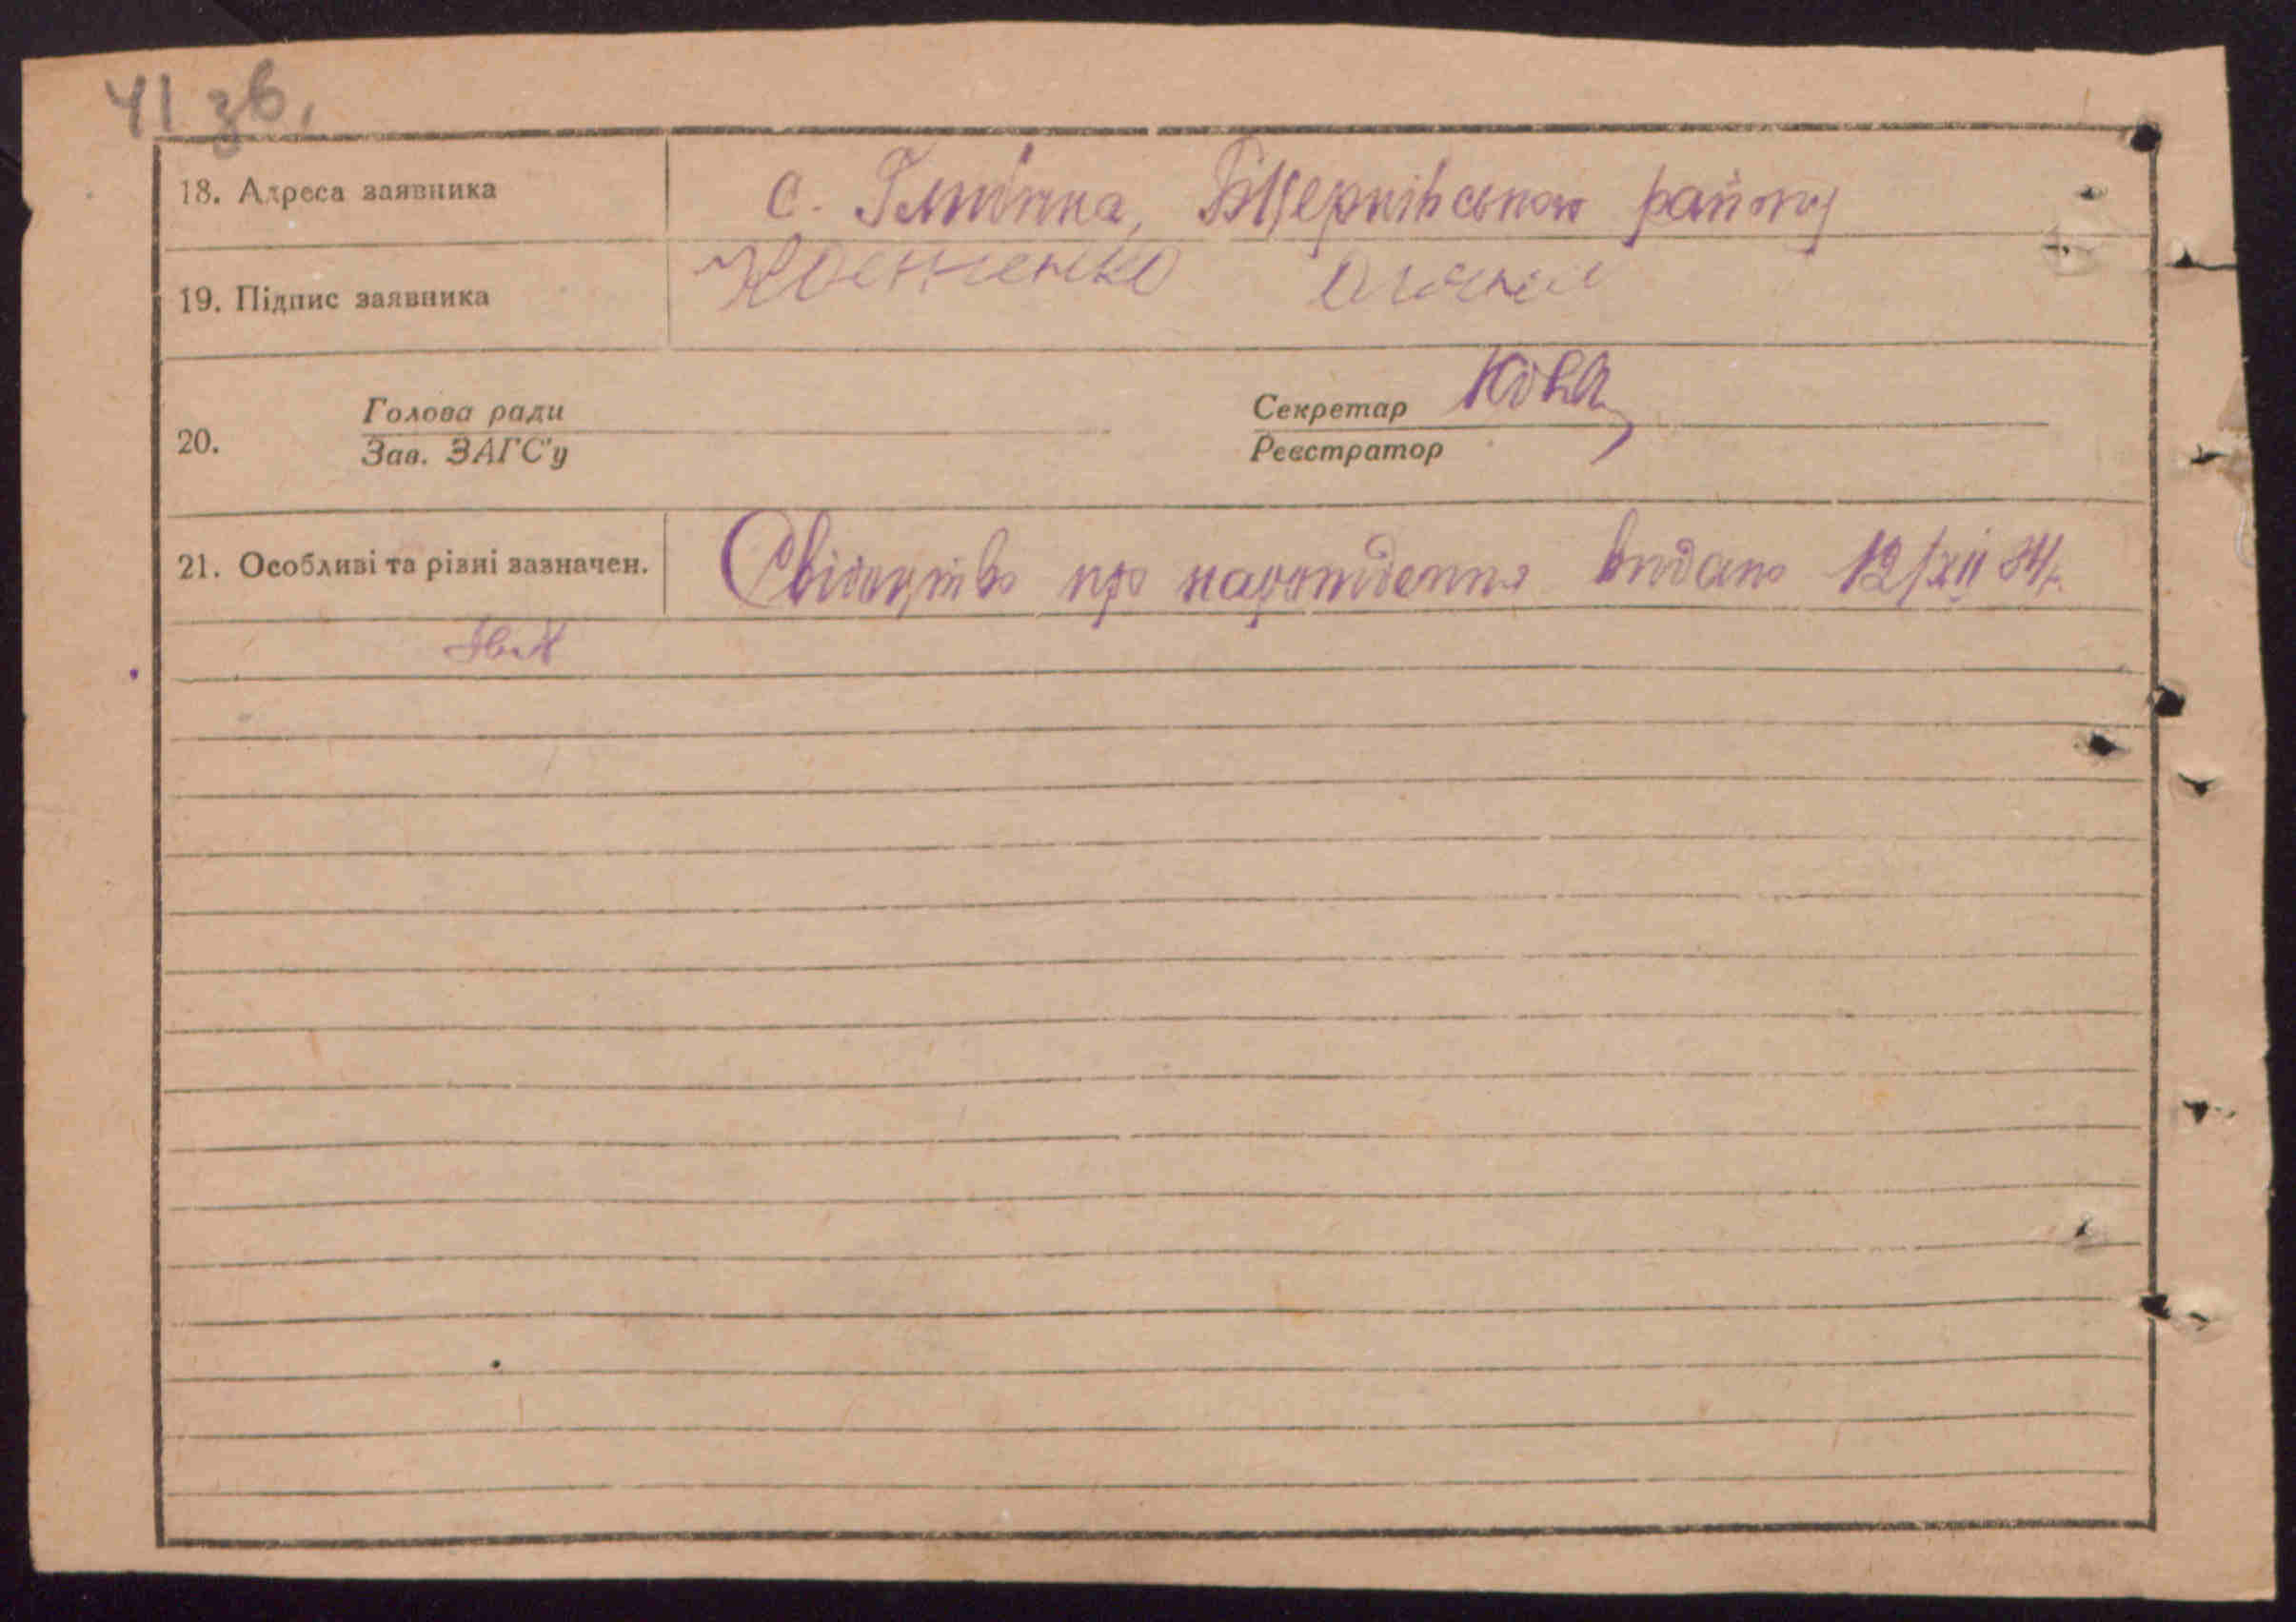 41 зв.
18. Адреса заявника с. Глибока, району
19. Підпис заявника
Голова ради Секретар Кова
20.
Зав. ЗАГС'у Реєстратор
21. Особливі та різні зазначен. Свідоцтво про народження видано 12/XII 34 р.